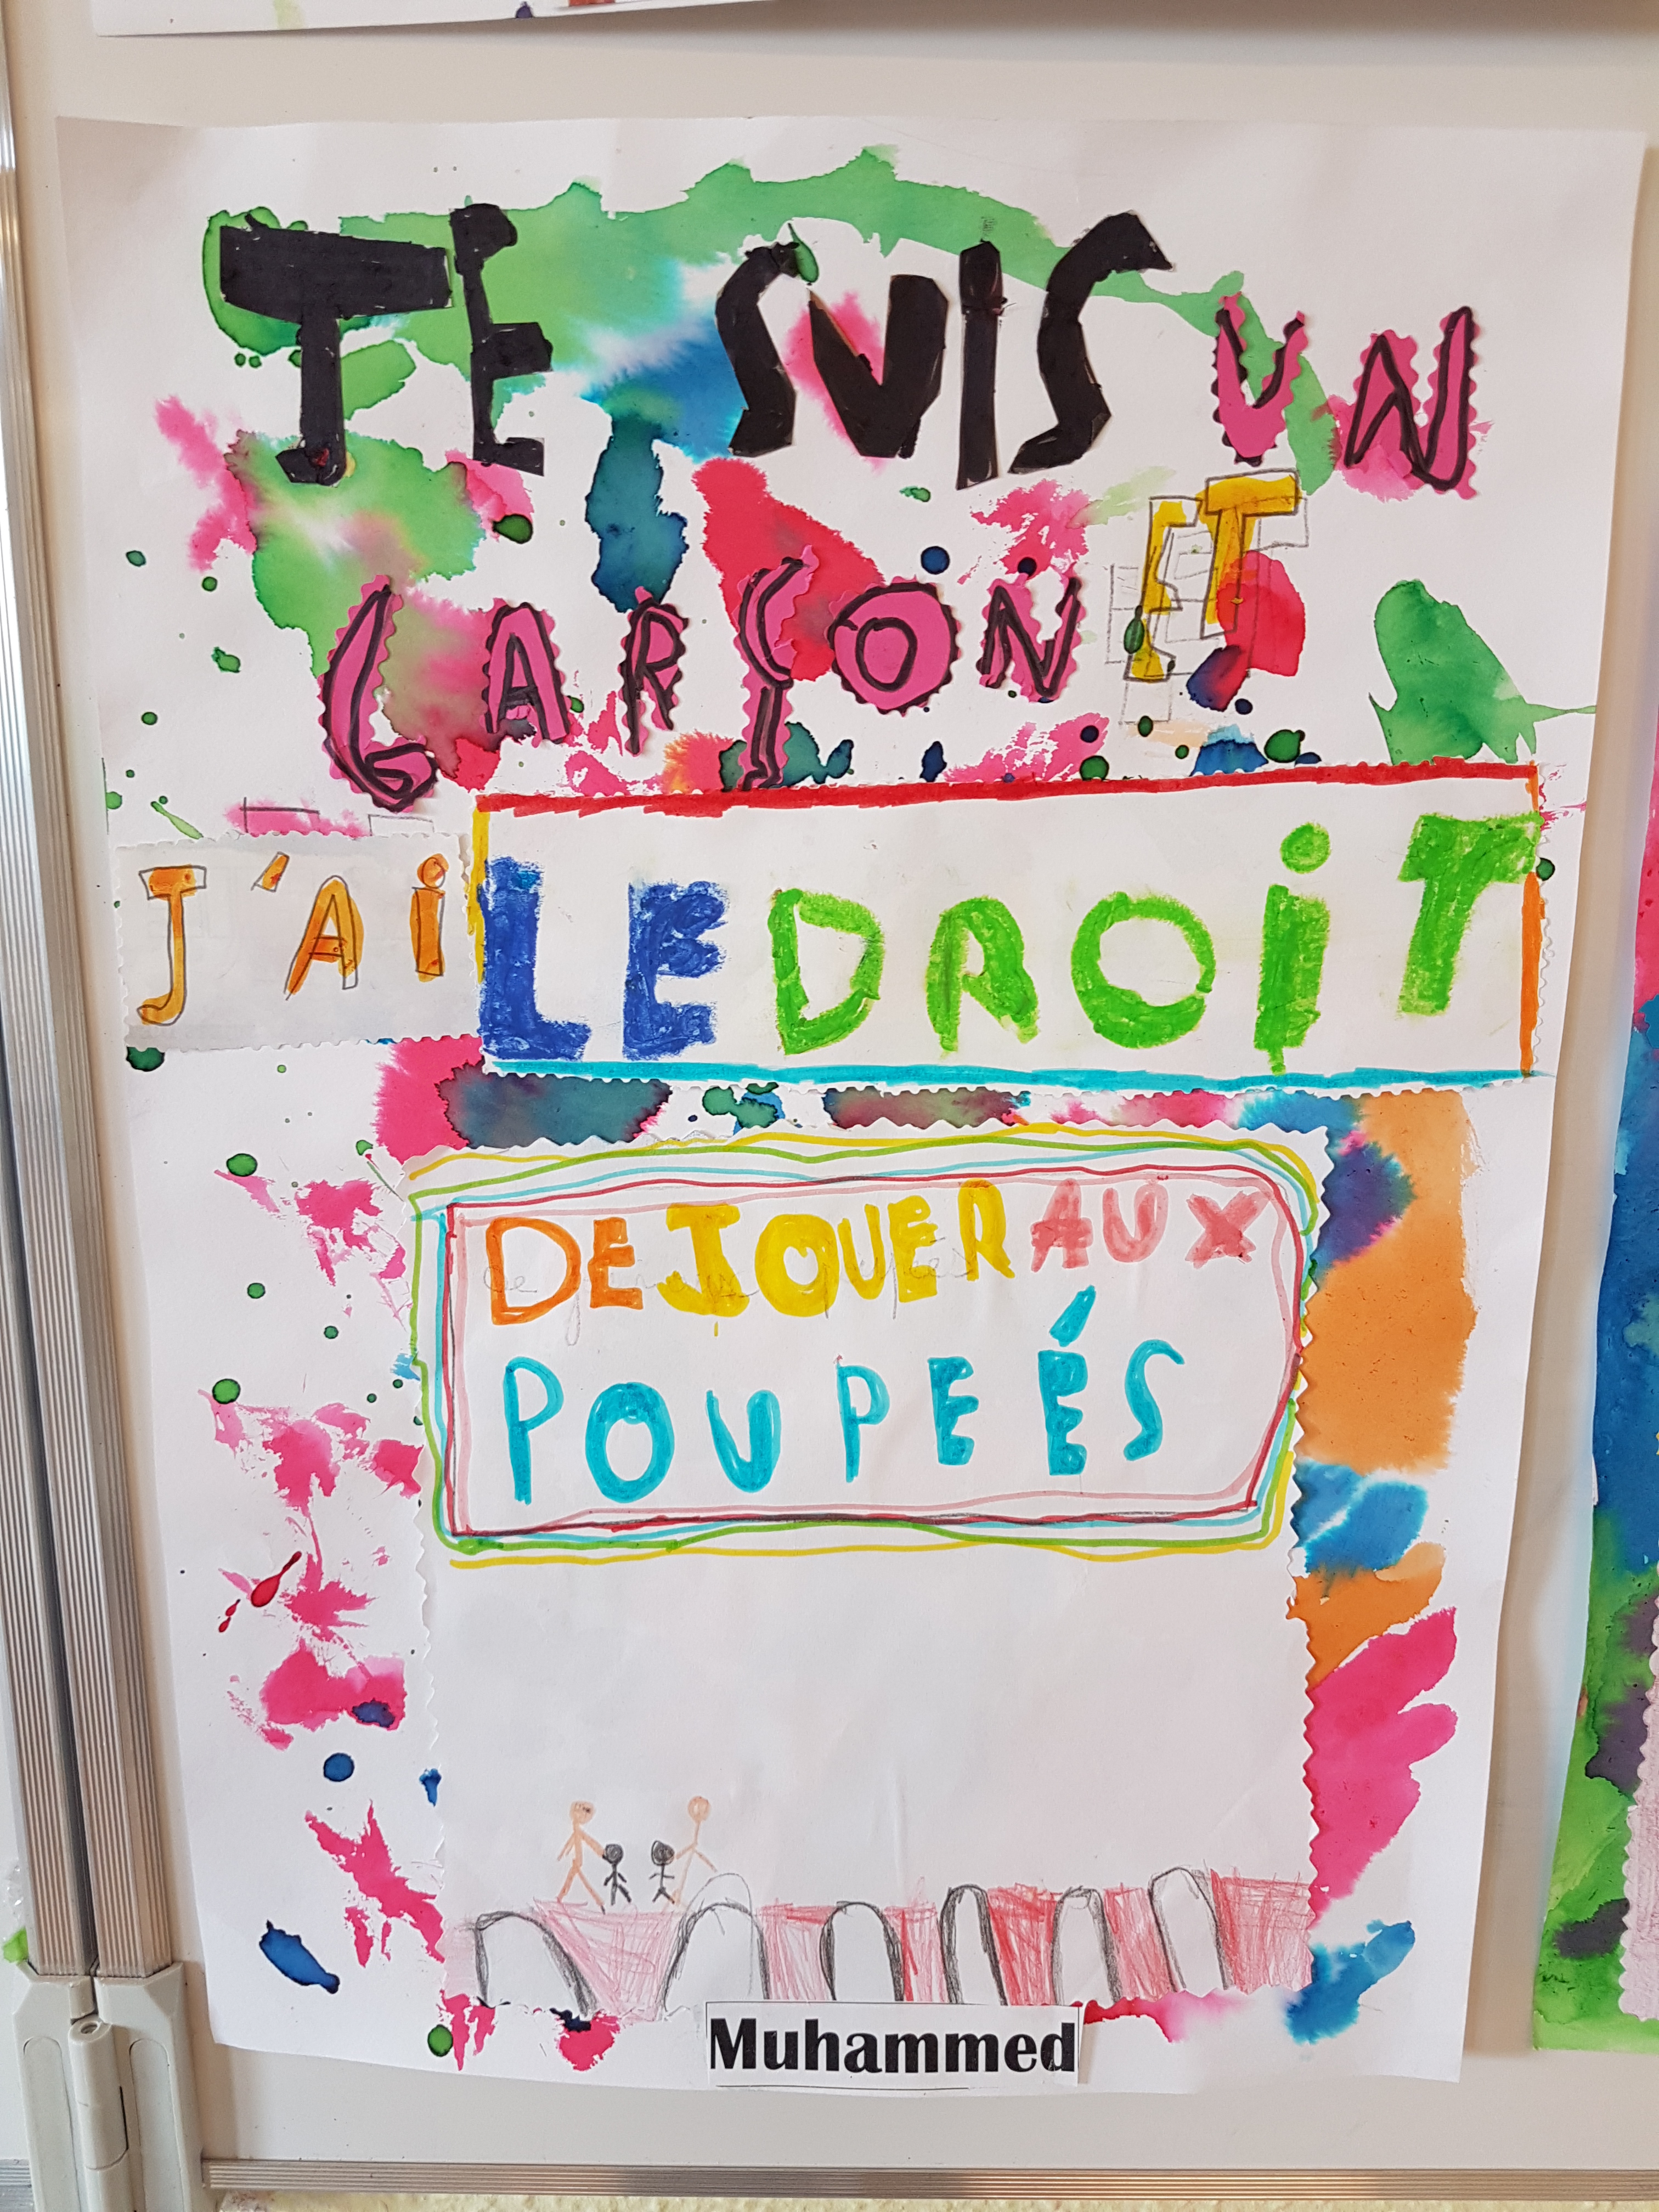 JE SUIS UN
GARÇON ET
J'Ai LE DROiT
DE JOUER AUX
POUPEÉS
Muhammed